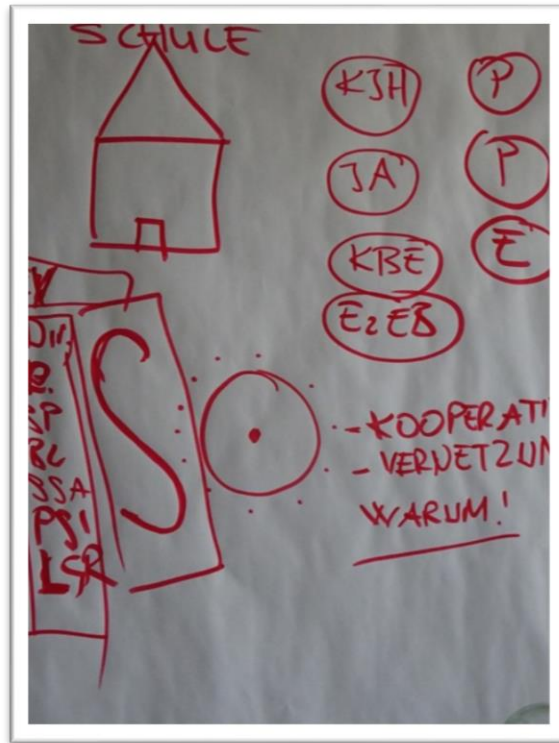 SCHULE
KJH P
JA P
KBE E
EzEB
S
SP
BL
SSA
PSI
LSR
- KOOPERATI
- VERNETZUN
WARUM!